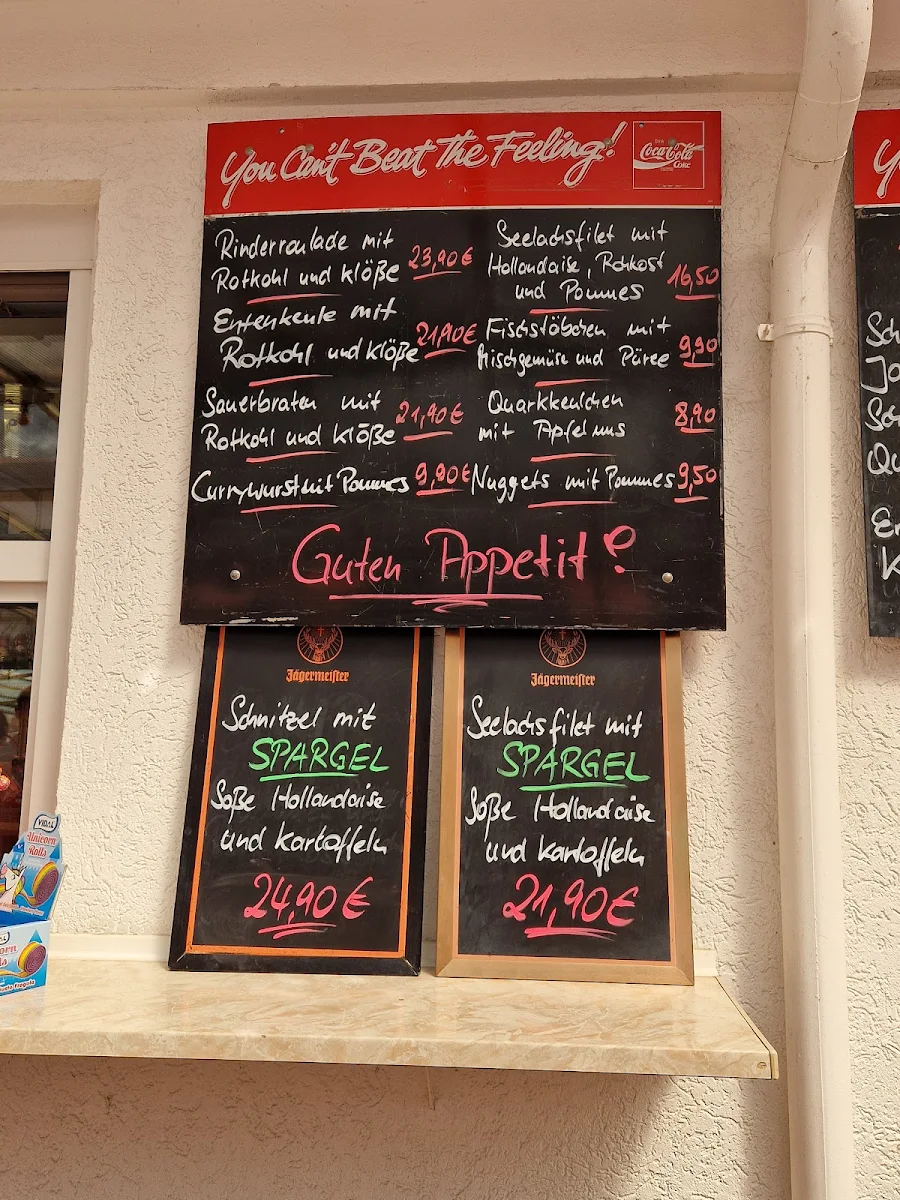 You Can't Beat The Feeling!
Coca-Cola
Coke
Rinderroulade mit
Rotkohl und Klöße 23,90€
Entenkeule mit
Rotkohl und Klöße 21,90€
Sauerbraten mit
Rotkohl und Klöße 21,90€
Currywurst mit Pommes 9,90€
Seelachsfilet mit
Hollandaise, Rohkost
und Pommes 16,50
Fischstäbchen mit
Mischgemüse und Püree 9,90
Quarkkeulchen
mit Apfelmus 8,90
Nuggets mit Pommes 9,50
Guten Appetit!
Jägermeister
Schnitzel mit
SPARGEL
Soße Hollandaise
und Kartoffeln
24,90€
Jägermeister
Seelachsfilet mit
SPARGEL
Soße Hollandaise
und Kartoffeln
21,90€
VIDAL
Unicorn
Rolls